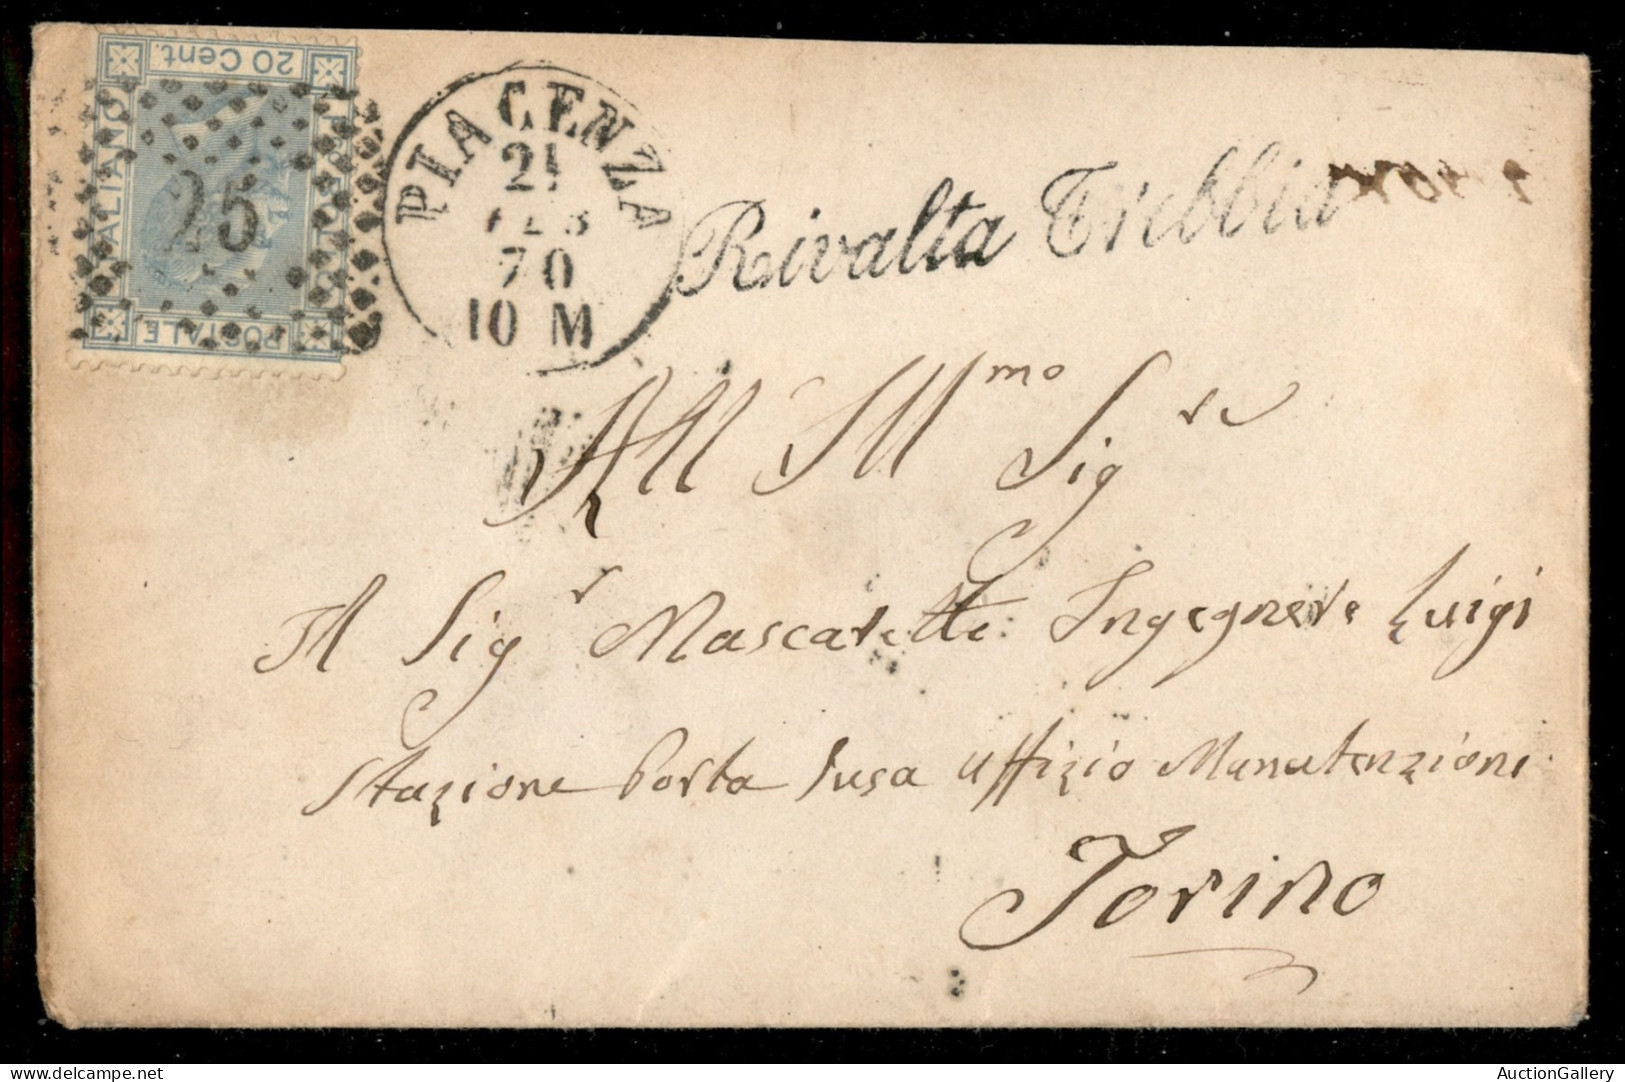 20 Cent.
POSTALE
ALIANO
25
PIACENZA
21
FEB
70
10 M
Rivalta Trebbia
All Ill mo Sig re
Il Sig r Mascaretti Ingegnere Luigi
Stazione Porta Susa Uffizio Manutenzioni
Torino
AuctionGallery